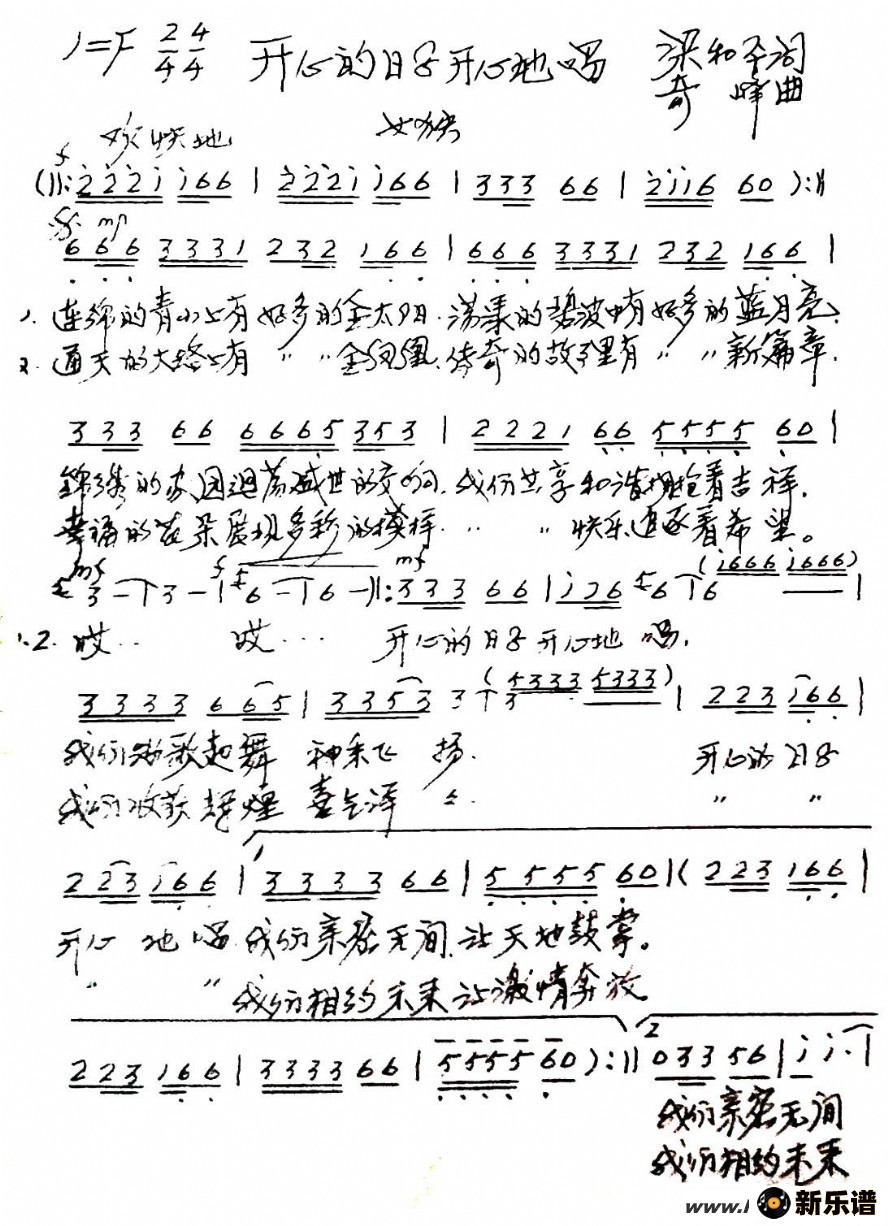 1=F 2/4 4/4 开心的日子开心地唱 梁和平词
奇峰曲
f 欢快地
(‖: 2221 166 | 2221 166 | 333 66 | 2116 60 ):‖
mf
666 3331 232 166 | 666 3331 232 166 |
1. 连绵的青山上有好多的金太阳.荡漾的碧波中有好多的蓝月亮.
2. 通天的大路上有 〃 〃 金凤凰.传奇的故事里有 〃 〃 新篇章.
333 66 6665 353 | 2221 66 5555 60 |
锦绣的家园回荡盛世的交响.我们共享和谐拥抱着吉祥.
幸福的花朵展现多彩的模样. 〃 〃 快乐追逐着希望。
mf f mf
3 – | 3 – | 6 – | 6 – ‖: 333 66 | i26 6 | 6 (i666 i666) |
1.2. 哎… 哎… 开心的日子开心地唱.
3333 665 | 3353 3 | 3 (5333 5333) | 223 166 |
我们踏歌起舞 神采飞扬. 开心的日子
我们收获辉煌 喜气洋 〃 〃
223 166 | 3333 66 | 5555 60 | ( 223 166 |
开心地唱.我们亲密无间.让天地鼓掌。
〃 〃 我们相约未来让激情奔放
223 166 | 3333 66 | 5555 60 ):‖ 2 033 56 | i i. |
我们亲密无间
我们相约未来
www.
新乐谱